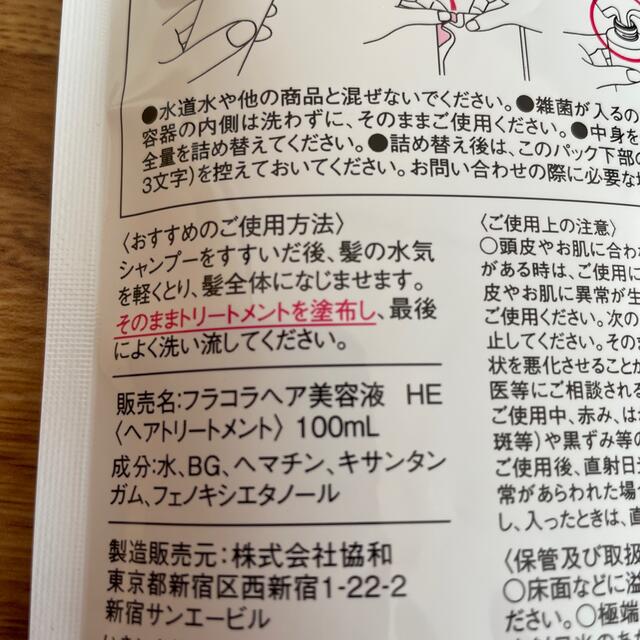 ●水道水や他の商品と混ぜないでください。●雑菌が入るの
容器の内側は洗わずに、そのままご使用ください。●中身を
全量を詰め替えてください。●詰め替え後は、このパック下部の
3文字)を控えておいてください。お問い合わせの際に必要な
〈おすすめのご使用方法〉
シャンプーをすすいだ後、髪の水気
を軽くとり、髪全体になじませます。
そのままトリートメントを塗布し、最後
によく洗い流してください。
販売名:フラコラヘア美容液 HE
〈ヘアトリートメント〉 100mL
成分:水、BG、ヘマチン、キサンタン
ガム、フェノキシエタノール
製造販売元:株式会社協和
東京都新宿区西新宿1-22-2
新宿サンエービル
〈ご使用上の注意〉
○頭皮やお肌に合わ
がある時は、ご使用に
皮やお肌に異常が生
ご使用ください。次の
止してください。そのま
状を悪化させることが
医等にご相談される
ご使用中、赤み、は
斑等)や黒ずみ等の
ご使用後、直射日
常があらわれた場
し、入ったときは、直
〈保管及び取扱
○床面などに溢
ださい。○極端